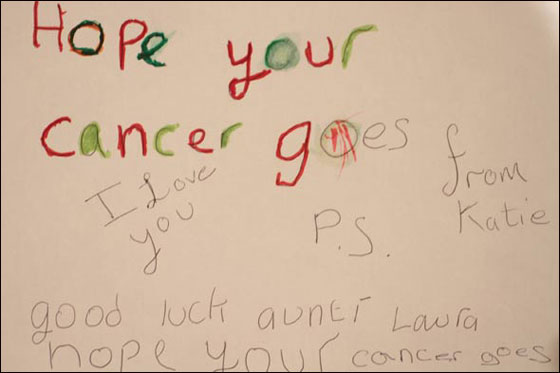 Hope your
cancer goes
I Love
you
from
Katie
P.S.
good luck aunti Laura
hope your cancer goes